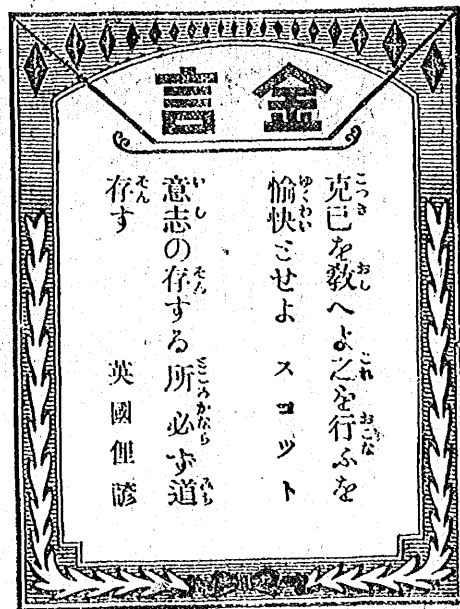 金言
克己を敎へよ之を行ふを
愉快とせよ スコット
意志の存する所必ず道
存す 英國俚諺